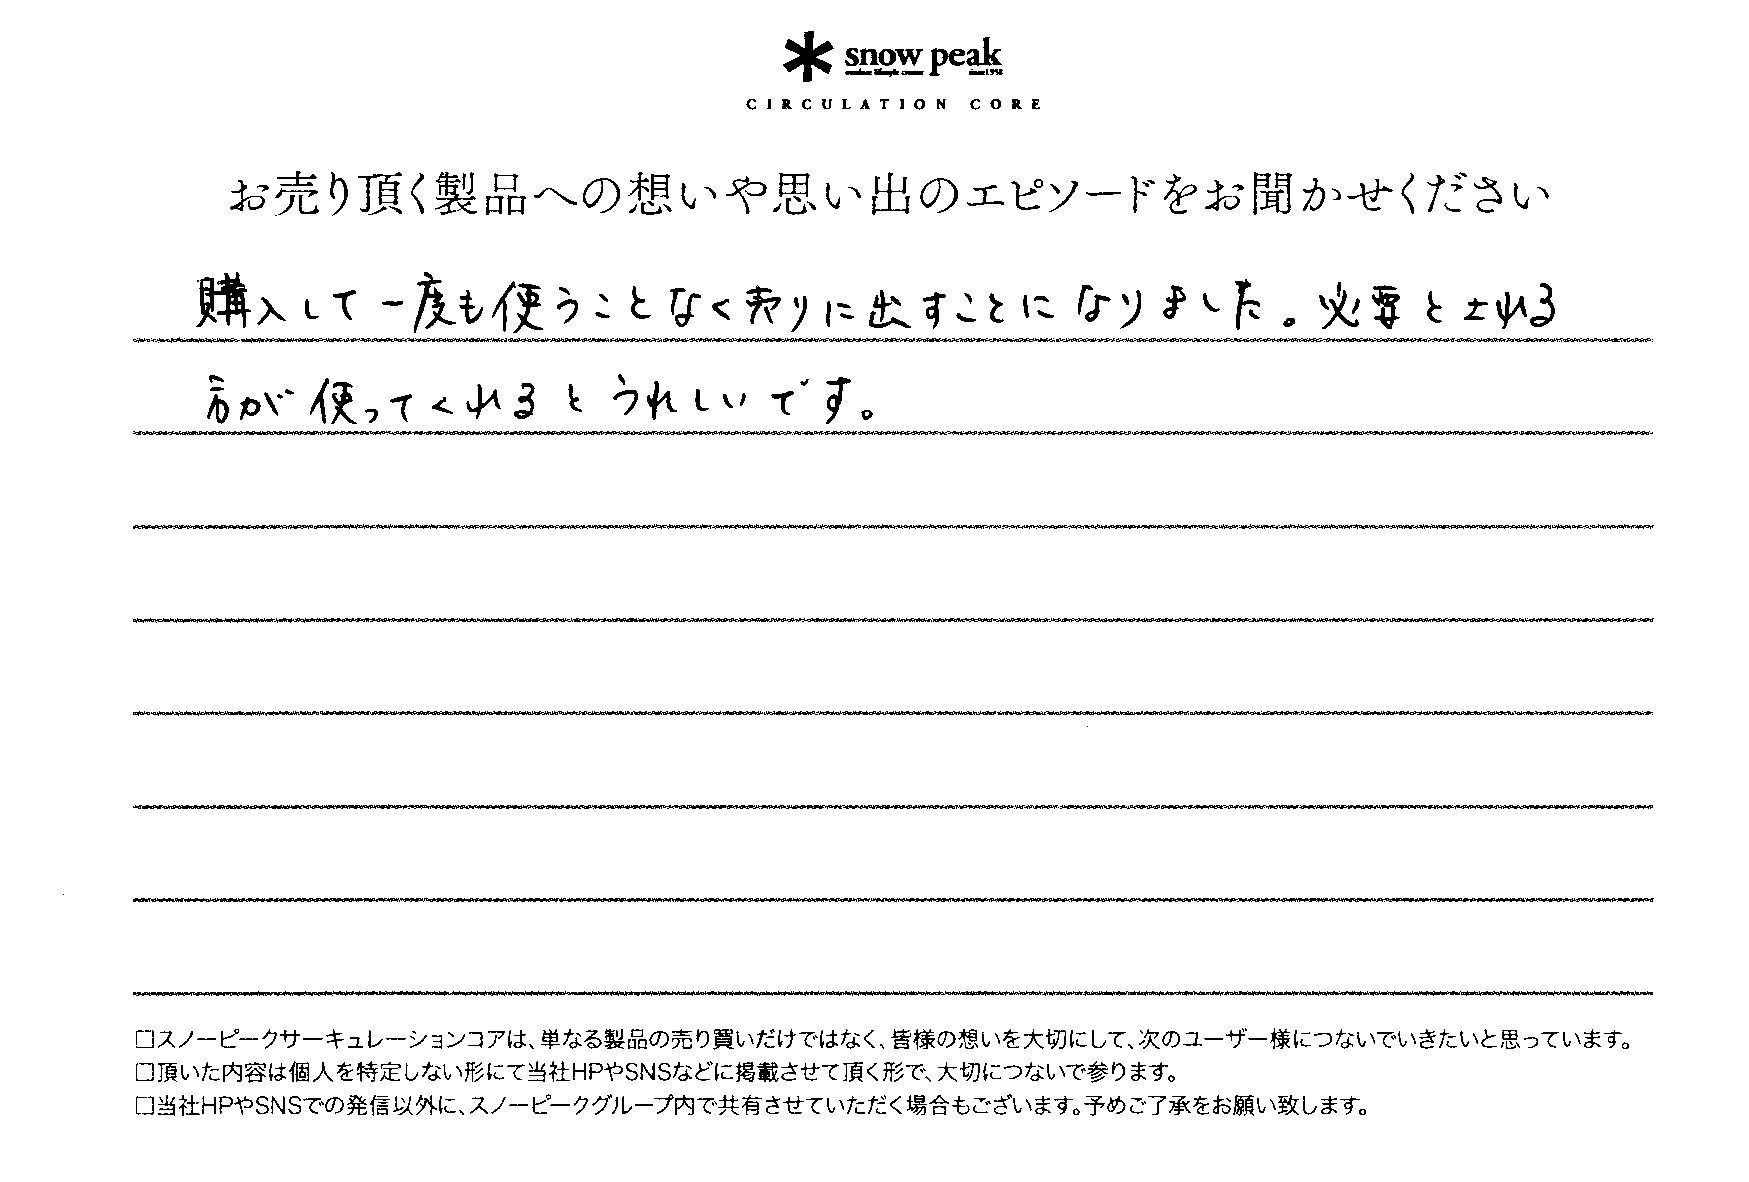 snow peak
CIRCULATION CORE
お売り頂く製品への想いや思い出のエピソードをお聞かせください
購入して一度も使うことなく売りに出すことになりました。必要とされる
方が使ってくれるとうれしいです。
□スノーピークサーキュレーションコアは、単なる製品の売り買いだけではなく、皆様の想いを大切にして、次のユーザー様につないでいきたいと思っています。
□頂いた内容は個人を特定しない形にて当社HPやSNSなどに掲載させて頂く形で、大切につないで参ります。
□当社HPやSNSでの発信以外に、スノーピークグループ内で共有させていただく場合もございます。予めご了承をお願い致します。